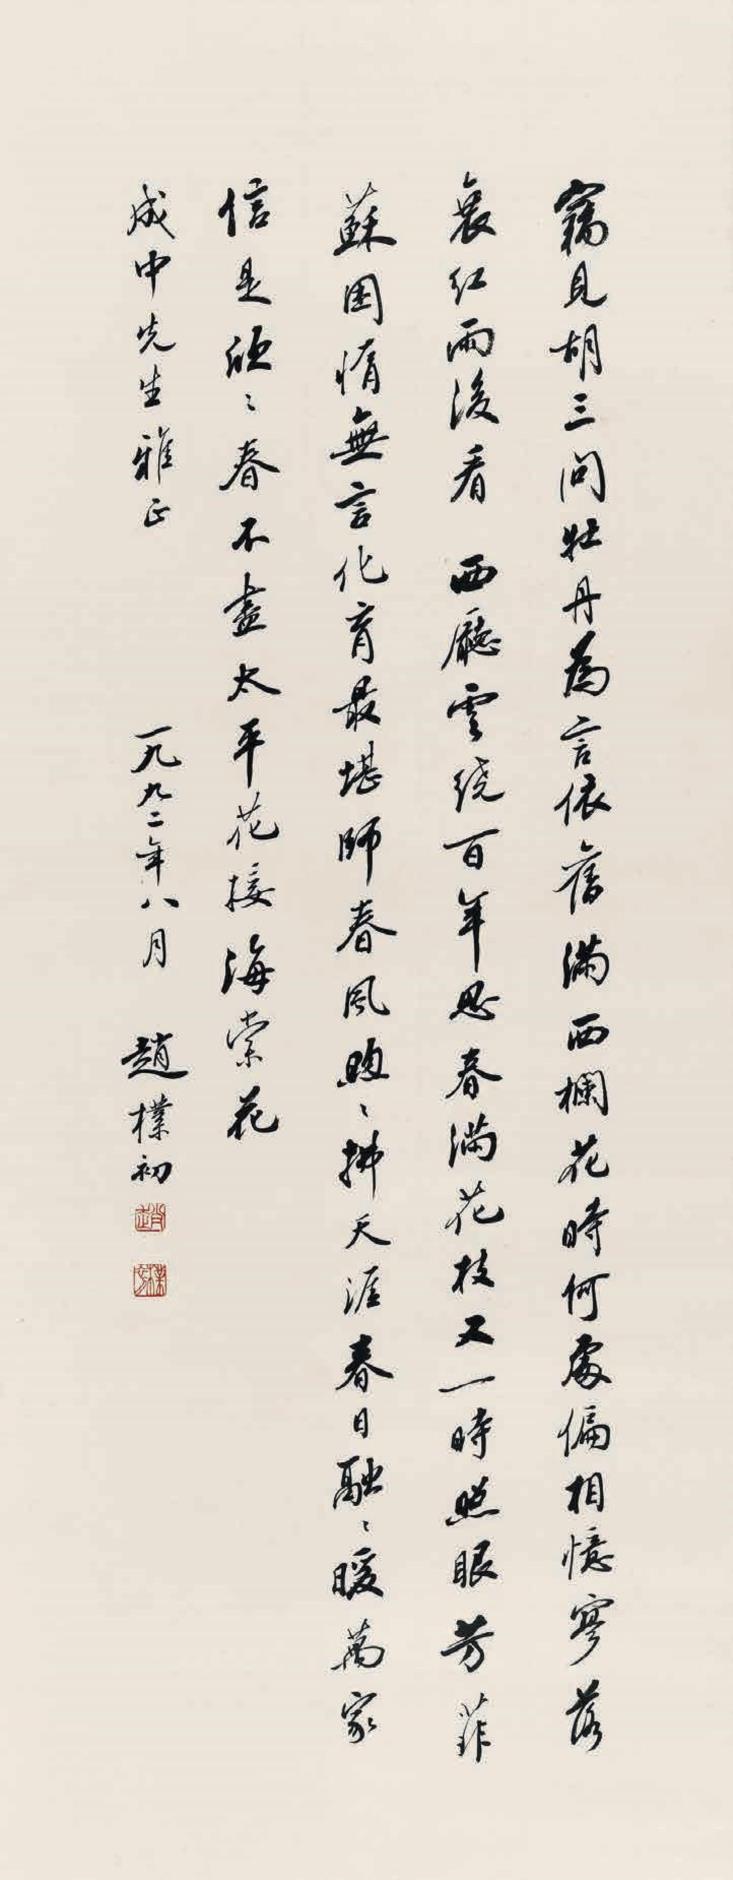 竊見胡三問牡丹為言依舊滿西欄花時何處偏相憶寥落
衰紅雨後看　西廳雲繞百年思春滿花枝又一時照眼芳菲
蘇困惰無言化育最堪師春風煦〻拂天涯春日融〻暖萬家
信是欣〻春不盡太平花接海棠花
成中先生雅正　一九九二年八月　趙樸初
趙
樸初